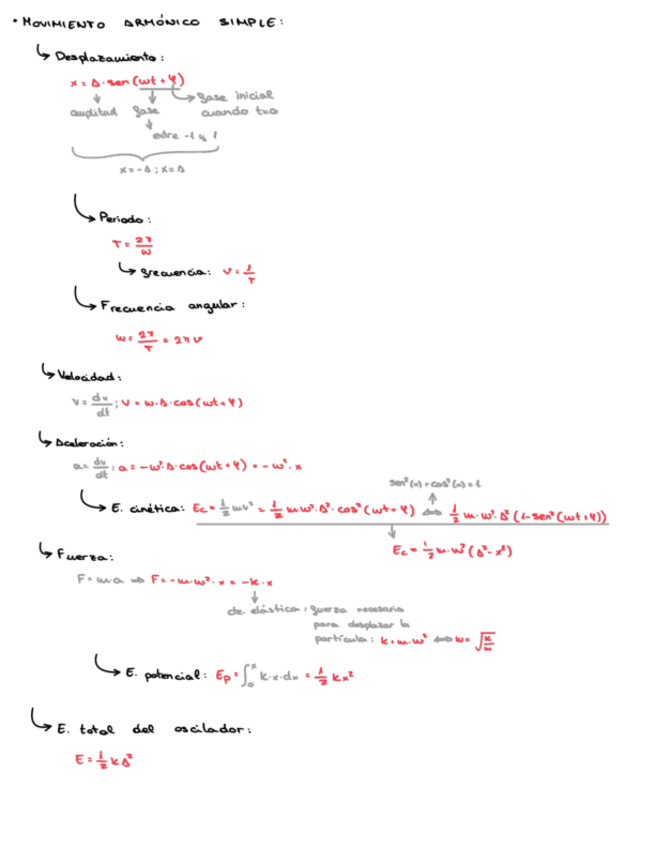 • MOVIMIENTO ARMÓNICO SIMPLE:
↳ Desplazamiento:
x = A · sen (ωt + φ)
amplitud fase fase inicial cuando t=0
entre -1 y 1
x = -A ; x = A
↳ Periodo:
T = 2π/ω
↳ frecuencia: ν = 1/T
↳ Frecuencia angular:
ω = 2π/T = 2πν
↳ Velocidad:
v = dx/dt ; v = ω · A · cos (ωt + φ)
↳ Aceleración:
a = dv/dt ; a = -ω² · A · cos (ωt + φ) = -ω² · x
sen²(α) + cos²(α) = 1
↳ E. cinética: Ec = 1/2 mv² = 1/2 m ω² · A² · cos² (ωt + φ) ⟺ 1/2 m · ω² · A² (1 - sen² (ωt + φ))
Ec = 1/2 m · ω² (A² - x²)
↳ Fuerza:
F = m · a ⇒ F = -m · ω² · x = -k · x
cte. elástica: fuerza necesaria
para desplazar la
partícula: k = m · ω² ⟺ ω = √(k/m)
↳ E. potencial: Ep = ∫₀ˣ k · x · dx = 1/2 kx²
↳ E. total del oscilador:
E = 1/2 k A²